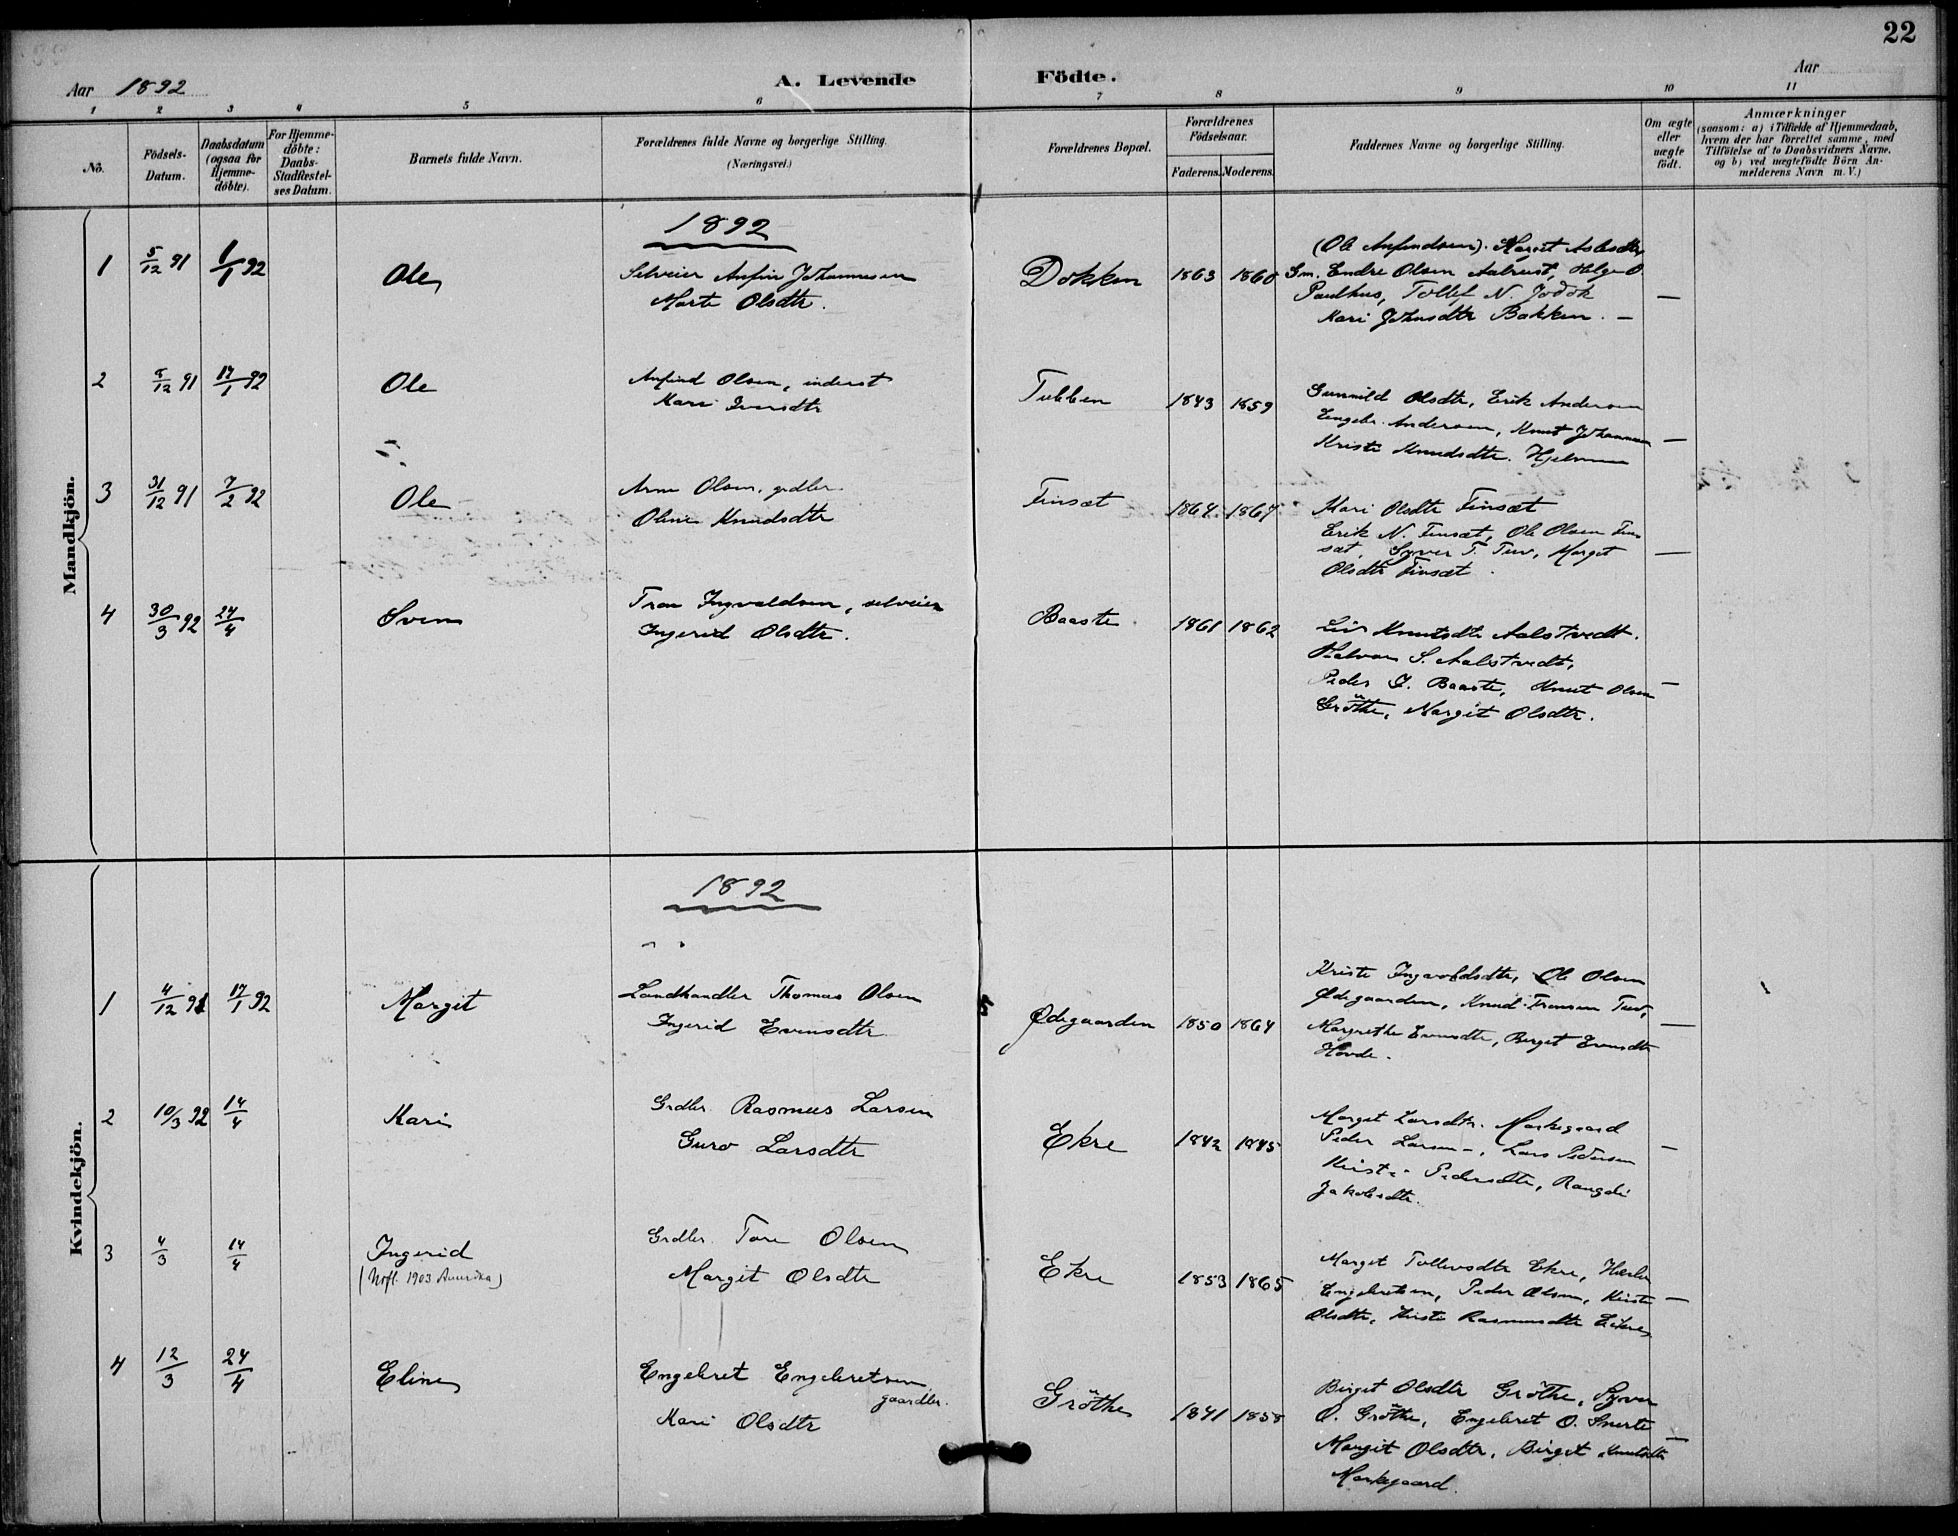 22
Aar 1892
A. Levende Födte.
Aar
1 2 3 4 5 6 7 8 9 10 11
No.
Födsels-Datum.
Daabsdatum (ogsaa for Hjemme-döbte).
For Hjemme-döbte: Daabs-Stadfæstel-ses Datum.
Barnets fulde Navn.
Forældrenes fulde Navne og borgerlige Stilling. (Næringsvei.)
Forældrenes Bopæl.
Forældrenes Födselsaar.
Faderens. Moderens.
Faddernes Navne og borgerlige Stilling.
Om ægte eller uægte födt.
Anmærkninger
(saasom: a) i Tilfælde af Hjemmedaab,
hvem der har forrettet samme, med
Tilföielse af to Daabsvidners Navne.
og b) ved uægtefödte Börn An-
melderens Navn m. V.)
Mandkjön.
1892
1 5/12 91 6/1 92 Ole
Selveier Anfin Johannesen
Marte Olsdtr.
Dokken 1863 1860
(Ole Anfindsen). Margit Aslesdtr
Gm. Endre Olsen Aalrust, Helge O.
Paulhus, Tollef N. Jodok
Mari Johnsdtr Bakken. —
2 8/12 91 17/1 92 Ole
Anfind Olsen, inderst
Mari Iversdtr
Tubben 1843 1859
Gunnild Olsdtr, Erik Andersen
Engebr. Andersen, Knut Johannesen —
Kristi Knudsdtr.
3 31/12 91 7/2 92 Ole
Arne Olsen, grdbr.
Oline Knudsdtr
Finsæt 1864 1867
Mari Olsdtr Finsæt
Erik N. Finsæt, Ole Olsen Fin
sæt, Syver T. Tuv, Marget —
Olsdtr Finsæt.
4 30/3 92 24/4 Sven
Tron Ingvaldsen, selveier
Ingerid Olsdtr.
Baaste 1861 1862
Liv Knutsdtr Aalstvedt.
Halvor S. Aalstvedt,
Peder I. Baaste, Knut Olsen —
Gröthe, Margit Olsdtr.
Kvindekjön.
1892
1 4/12 91 17/1 92 Margit
Landhandler Thomas Olsen
Ingerid Evensdtr
Ødegaarden 1850 1864
Kristi Ingvaldsdtr, Ole Olsen
Ødegaarden, Knud Tronsen Tuv,
Margrethe Evensdtr, Berget Evensdtr —
Hovde.
2 10/3 92 14/4 Kari
Grdbr. Rasmus Larsen
Guro Larsdtr
Ekre 1842 1845
Marget Larsdtr. Markegaard
Peder Larsen —, Lars Pedersen —
Kirsti Pedersdtr, Rangdi
Jakobsdtr.
3 4/3 14/4 Ingerid
(Utfl. 1903 Amerika)
Grdbr. Tore Olsen
Margit Olsdtr
Ekre 1853 1865
Marget Tollevsdtr Ekre,
Engebretsen, Peder Olsen, Kirsti —
Olsdtr, Kirsti Rasmusdtr Ekre
4 12/3 24/4 Eline
Engebret Engebretsen,
gaardbr.
Kari Olsdtr
Gröthe 1841 1858
Birget Olsdtr Gröthe, Syver
O. Gröthe, Engebret O. Snerte —
Margit Olsdtr, Birget Knutsdtr
Markegaard.